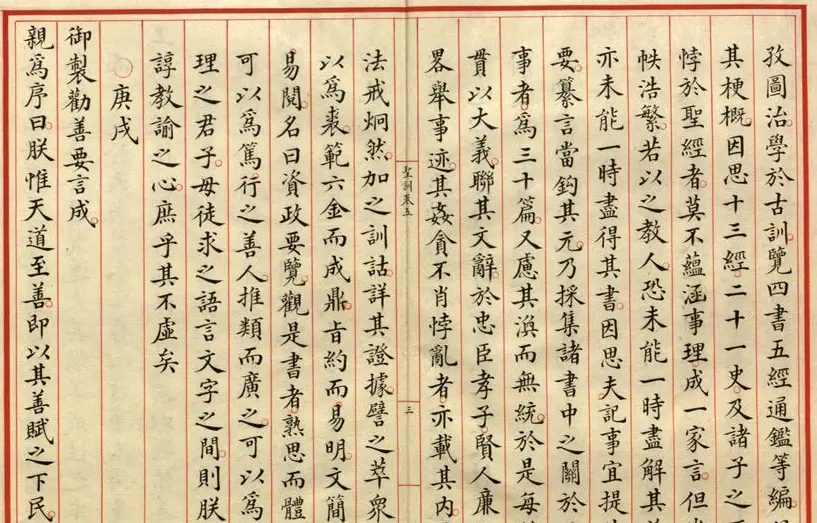 孜圖治學於古訓覽四書五經通鑑等編
其梗概因思十三經二十一史及諸子之
悖於聖經者莫不蘊涵事理成一家言但
帙浩繁若以之教人恐未能一時盡解其
亦未能一時盡得其書因思夫記事宜提
要纂言當鈎其元乃採集諸書中之關於
事者為三十篇又慮其渙而無統於是每
貫以大義聯其文辭於忠臣孝子賢人廉
畧舉事迹其姦貪不肖悖亂者亦載其內
聖訓卷五
三
法戒炯然加之訓詁詳其證據譬之萃衆
以為裘範六金而成鼎旨約而易明文簡
易閱名曰資政要覽觀是書者熟思而體
可以為篤行之善人推類而廣之可以為
理之君子毋徒求之語言文字之間則朕
諄教諭之心庶乎其不虛矣
○庚戌
御製勸善要言成
親為序曰朕惟天道至善即以其善賦之下民